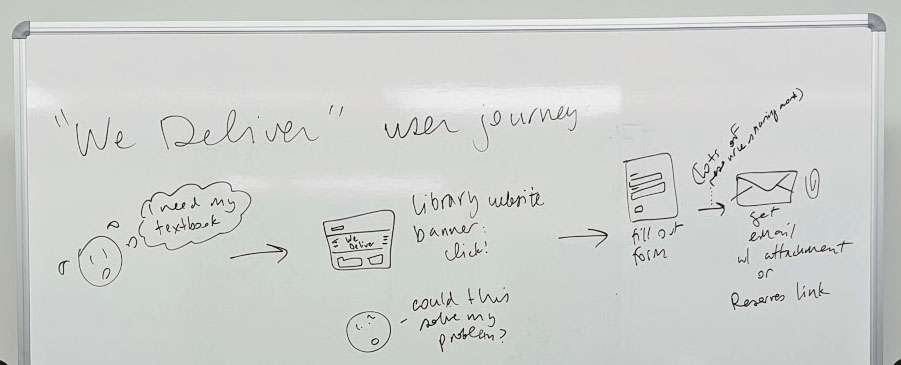 "We Deliver" user journey
I need my
textbook
We
Deliver
Library website
banner:
click!
could this
solve my
problem?
fill out
form
(lots of
resource sharing
get
email
w/ attachment
or
Reserves link